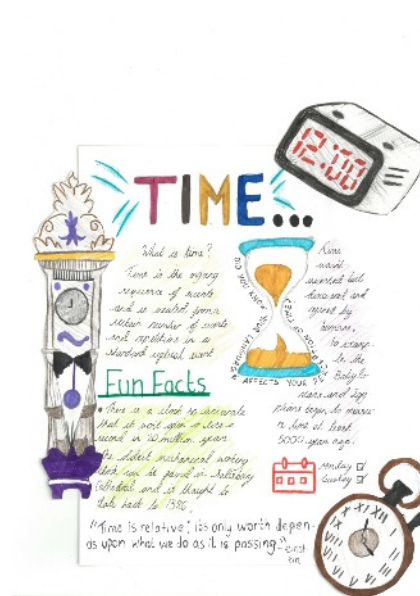 TIME...
12:00
What is time?
Time is the ongoing
sequence of events
and is
certain number of events
and repetition in a
standard cyclical event
DID YOU KNOW YOUR LANGUAGE
AFFECTS YOUR PERCEPTION OF TIME?
Time
wasn't
invented but
discovered and
agreed by
humans.
to the
Babylo-
nians and Egy-
ptians began to measu-
re time at least
5000 years ago.
Fun Facts
• There is a clock so accurate
that it won't gain or lose a
second in 20 million years
the oldest mechanical working
clock can be found in Salisbury
Cathedral and is thought to
date back to 1386.
monday
tuesday
"Time is relative; its only worth depen-
ds upon what we do as it is passing."
XII I II III IV V VI VII VIII IX X XI